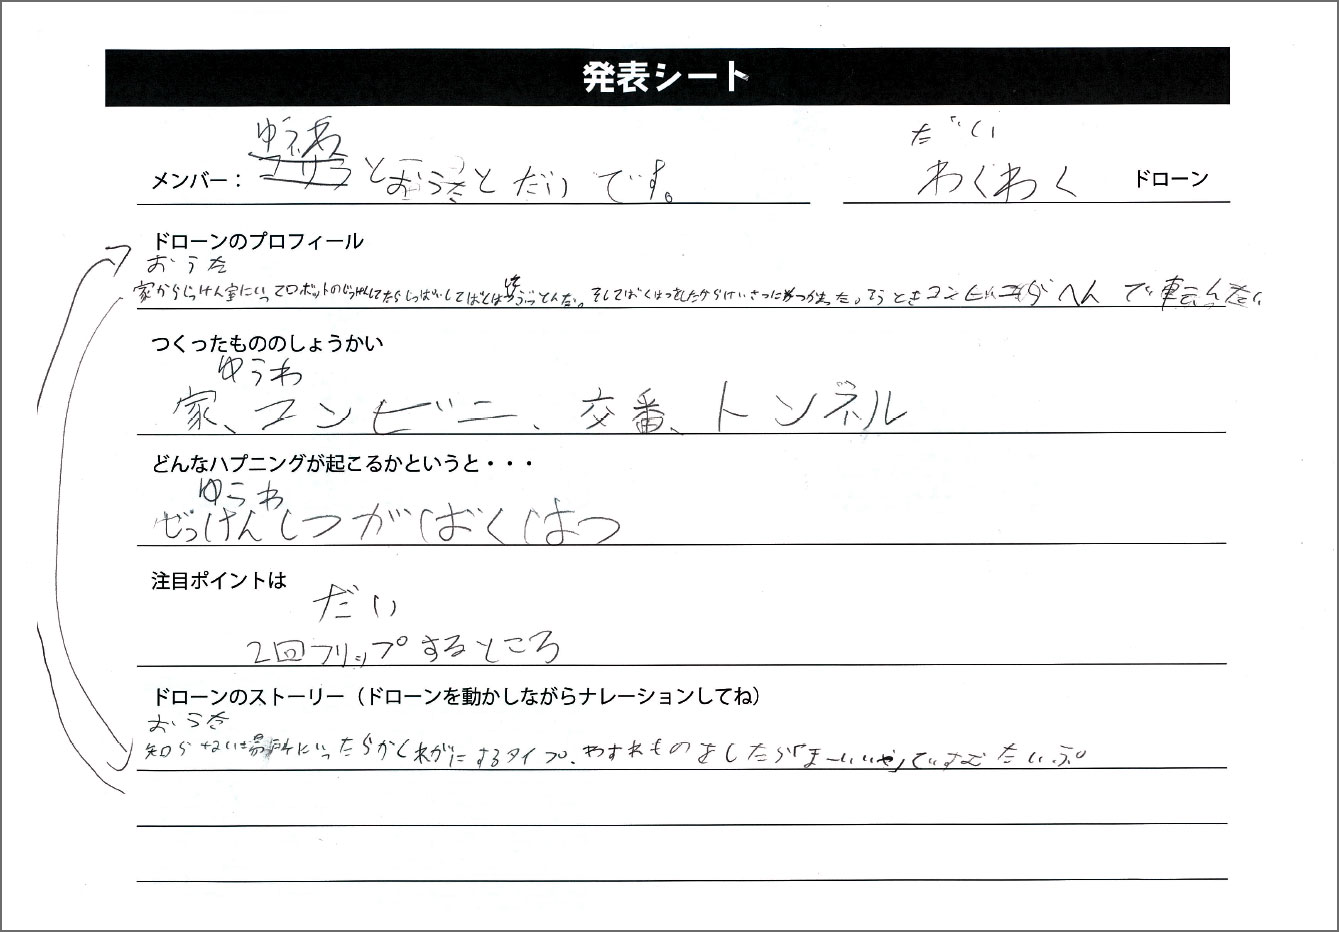 発表シート
ゆうわ
メンバー： とおうたとだいです。
だい
わくわく ドローン
ドローンのプロフィール
おうた
家からじっけん室にいってロボットのじっけんしてたらしっぱいしてばくはつ とんだ。そしてばくはつをしたからけいさつに つかまった。 コンビニ へんで
つくったもののしょうかい
ゆうわ
家、コンビニ、交番、トンネル
どんなハプニングが起こるかというと・・・
ゆうわ
ぜっけんしつがばくはつ
注目ポイントは
だい
2回フリップするところ
ドローンのストーリー（ドローンを動かしながらナレーションしてね）
おうた
知らない場所にいったらかくれがにするタイプ、わすれものをしたら「まーいいや」ですむたいぷ